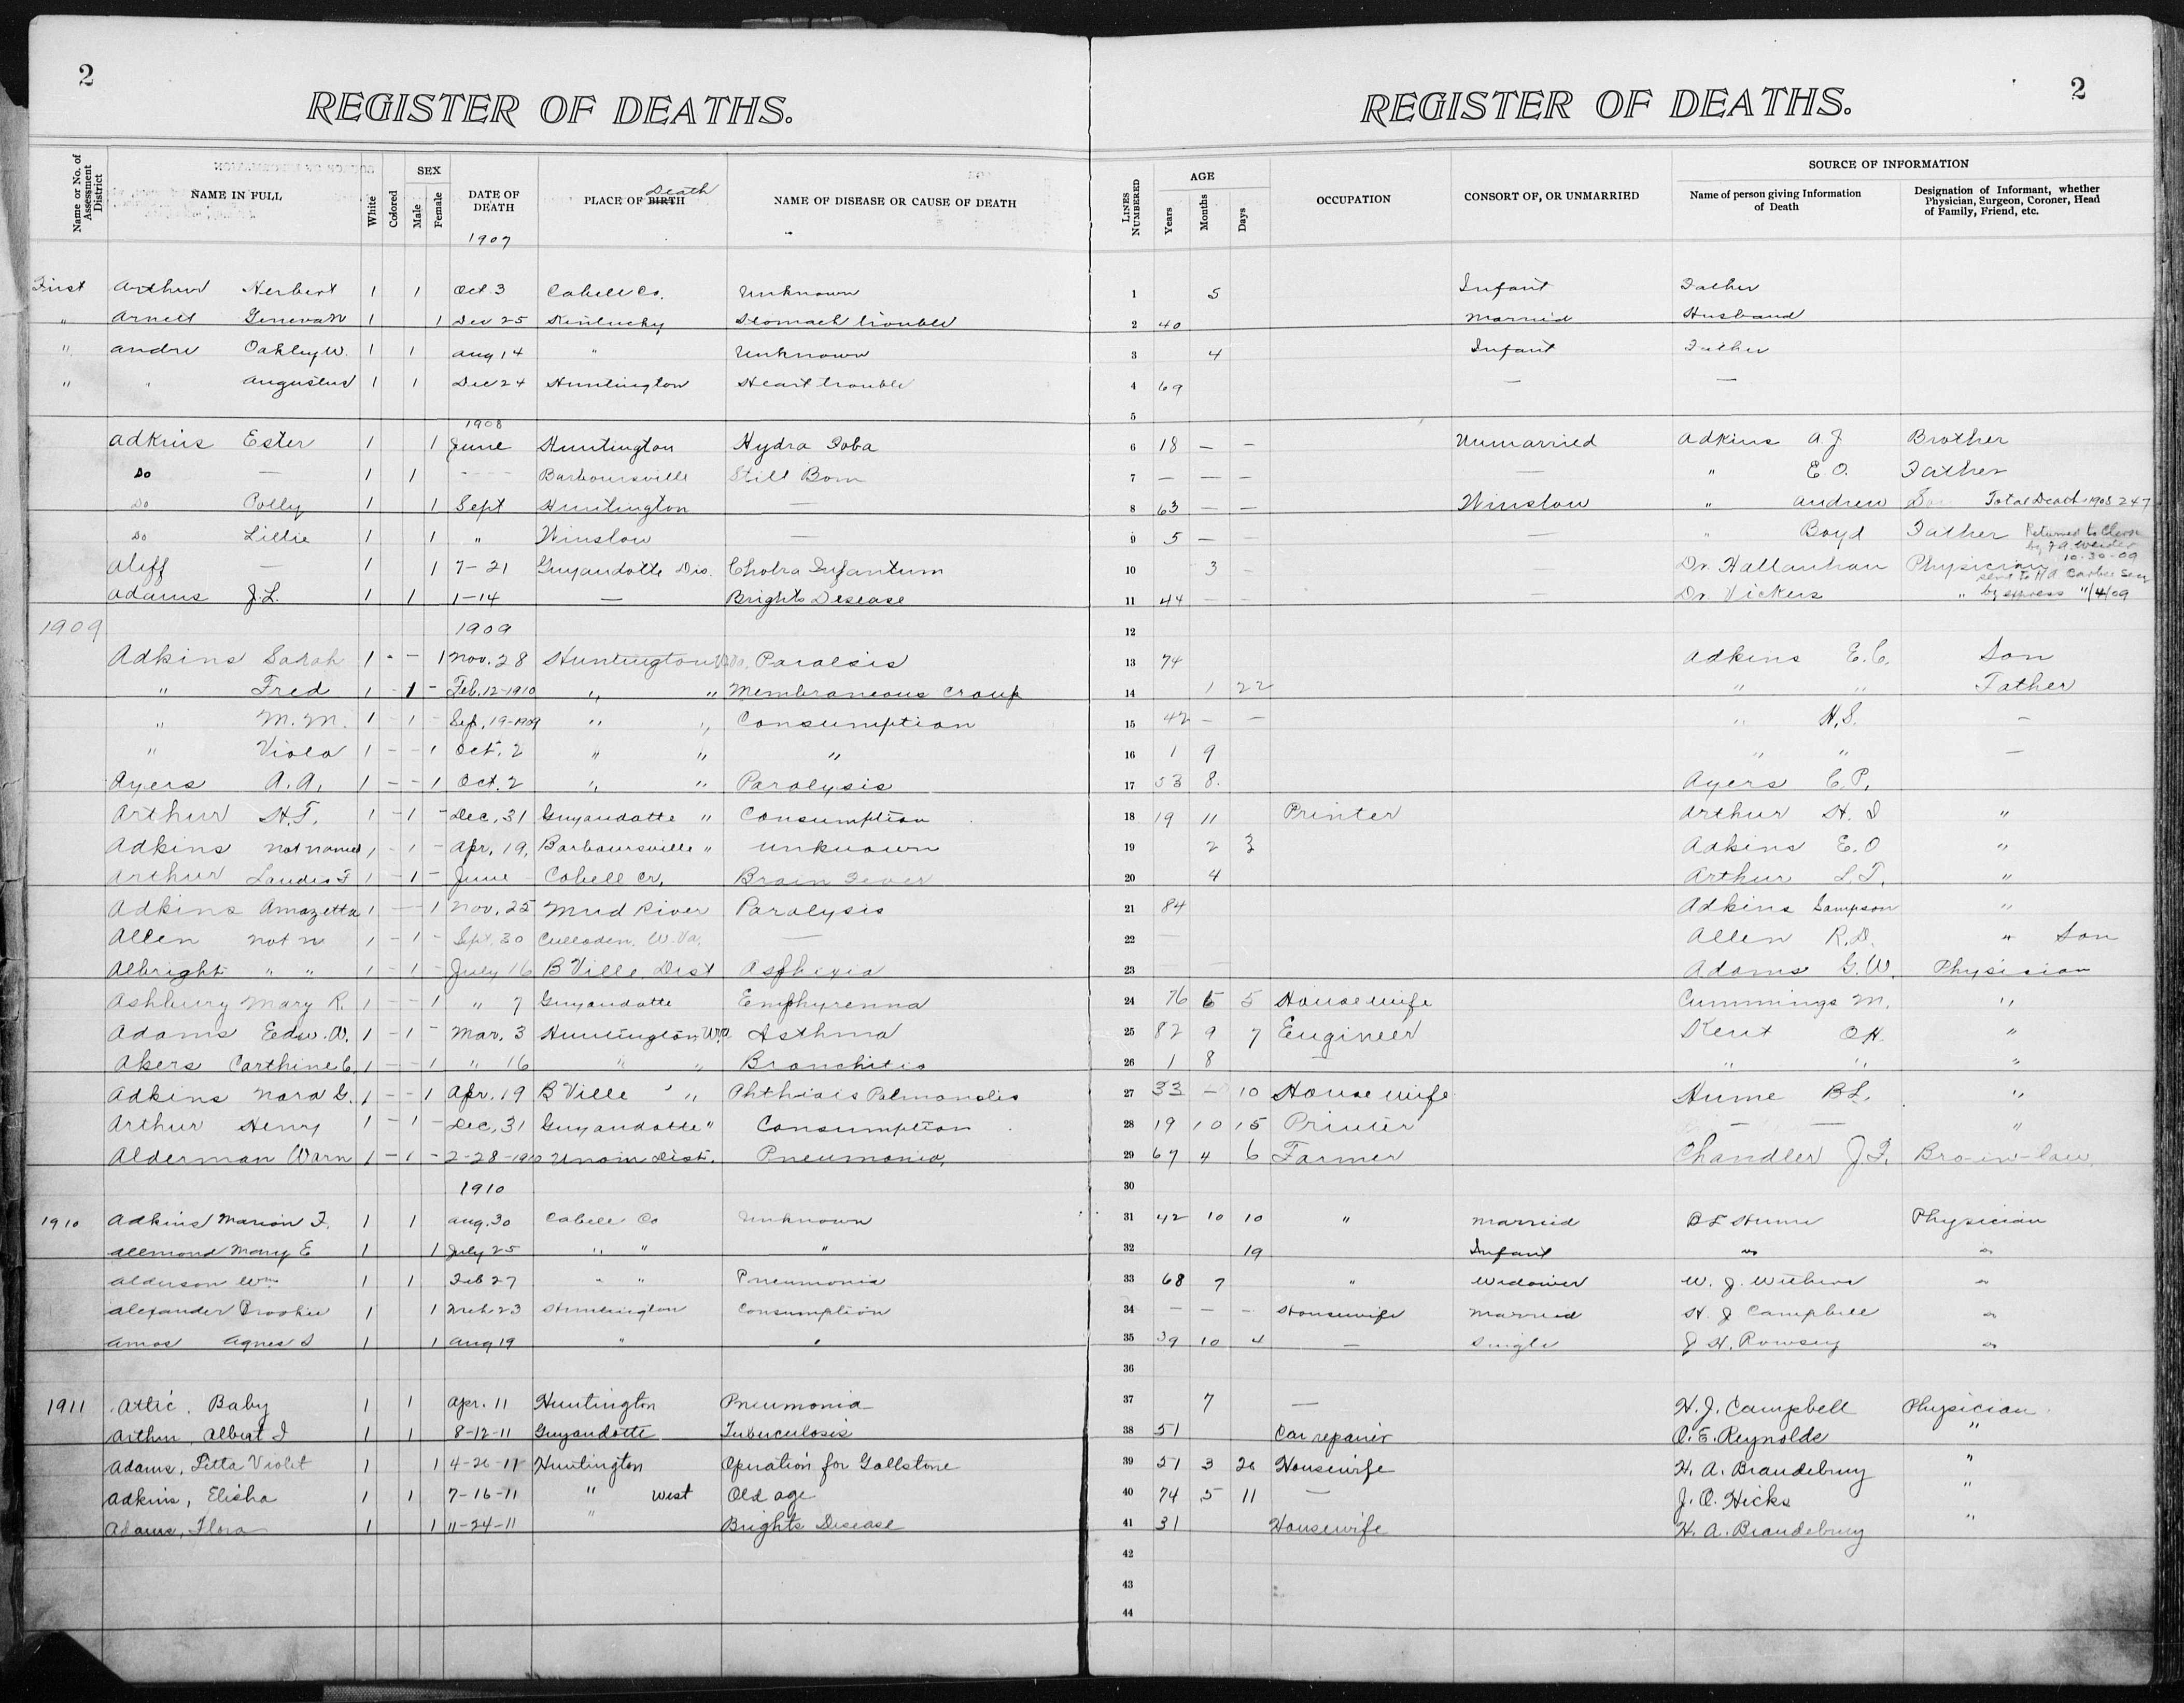 2
REGISTER OF DEATHS.
Name or No. of Assessment District
NAME IN FULL
White
Colored
SEX
Male
Female
DATE OF DEATH
PLACE OF BIRTH Death
NAME OF DISEASE OR CAUSE OF DEATH
1907
First Arthur Herbert 1 1 Oct. 3 Cabell Co. Unknown
" Arnett Geneva N 1 1 Dec 25 Kentucky Stomach trouble
" Andre Oakley W. 1 1 Aug 14 " Unknown
" " Augustus 1 1 Dec 24 Huntington Heart trouble
1908
Adkins Ester 1 1 June Huntington Hydra Foba
Do — 1 1 - - - Barboursville Still Born
Do Polly 1 1 Sept Huntington —
Do Lillie 1 1 " Winslow —
Aliff — 1 1 7-21 Guyandotte Dis. Cholra Infantum
Adams J.L. 1 1 1-14 — Brights Desease
1909 1909
Adkins Sarah 1 - - 1 Nov. 28 Huntington W.Va. Paralsis
" Fred 1 - 1 - Feb. 12-1910 " " Membraneous Croup
" M. M. 1 - 1 - Sep. 19-1909 " " Consumption
" Viola 1 - - 1 Oct. 2 " " "
Ayers A. A. 1 - - 1 Oct. 2 " " Paralysis
Arthur H.T. 1 - 1 - Dec. 31 Guyandotte " Consumption
Adkins not named 1 - 1 - Apr. 19, Barboursville " unknown
Arthur Landis F 1 - 1 - June Cabell Cr. Brain Fever
Adkins Amazetta 1 - - 1 Nov. 25 Mud River Paralysis
Allen not n 1 - 1 - Sept. 30 Culloden. W. Va. —
Albright " " 1 - 1 - July 16 B Ville Dist Asfhixia
Ashbury Mary R. 1 - - 1 " 7 Guyandotte Emphyrenna
Adams Edw. W. 1 - 1 - Mar. 3 Huntington W.Va Asthma
Akers Carthine C. 1 - - 1 " 16 " " Bronchitis
Adkins Nora G. 1 - - 1 Apr. 19 B Ville " " Phthisis Pulmonalis
Arthur Henry 1 - 1 - Dec, 31 Guyandotte " Consumption
Alderman Warn 1 - 1 - 2-28-1910 Unoin Dist. Pneumonia,
1910
1910 Adkins Marion F. 1 1 Aug. 30 Cabell Co Unknown
Allemond Mary E 1 1 July 25 " " "
Alderson Wm 1 1 Feb 27 " " Pneumonia
Alexander Brookie 1 1 Mch 23 Huntington Consumption
Amos Agnes 1 1 Aug 19 " "
1911 Attic. Baby 1 1 Apr. 11 Huntington Pneumonia
Arthur, Albert I 1 1 8-12-11 Guyandotte Tuberculosis
Adams, Violet 1 1 4-26-11 Huntington Operation for Gallstone
Adkins, Elisha 1 1 7-16-11 " West Old age
Adams, Flora 1 1 11-24-11 " Brights Disease
2
REGISTER OF DEATHS.
LINES NUMBERED
AGE
Years
Months
Days
OCCUPATION
CONSORT OF, OR UNMARRIED
SOURCE OF INFORMATION
Name of person giving Information of Death
Designation of Informant, whether Physician, Surgeon, Coroner, Head of Family, Friend, etc.
1 5 Infant Father
2 40 Married Husband
3 4 Infant Father
4 69 — —
5
6 18 — — Unmarried Adkins A. J. Brother
7 — — — — " E.O. Father
8 63 — — Winslow " Andrew Total Death 1908 247
9 5 — — — " Boyd Father Returned to Clerk
by 10-30-09
10 3 — — Dr. Hallanhan Physician
sent to by express 11/4/09
11 44 — — — Dr. Vickers "
12
13 74 Adkins E.C. Son
14 1 22 " " Father
15 42 — — " H.S. —
16 1 9 " " —
17 53 8. Ayers C.P.
18 19 11 Printer Arthur H. I "
19 2 3 Adkins E.O "
20 4 Arthur L.T. "
21 84 Adkins Sampson "
22 — Allen R.D. " Son
23 — — Adams G.W. Physician
24 76 6 5 Housewife Cummings M. "
25 82 9 7 Engineer Kent OH. "
26 1 8 — " " "
27 33 — 10 House wife Hume B.L. "
28 19 10 15 Printer — — "
29 67 4 6 Farmer Chandler J.F. Bro-in-law
30
31 42 10 10 " Married B L Hume Physician
32 19 Infant " "
33 68 7 " Widower W. J. Withers "
34 — — — Housewife Married H. J Campbell "
35 39 10 4 — Single J H. Rowsey "
36
37 7 — H. J. Campbell Physician
38 51 Car repairer O. E. Reynolds "
39 51 3 26 Housewife H. A. Brandebury "
40 74 5 11 — J. O. Hicks "
41 31 Housewife H. A. Brandebury "
42
43
44